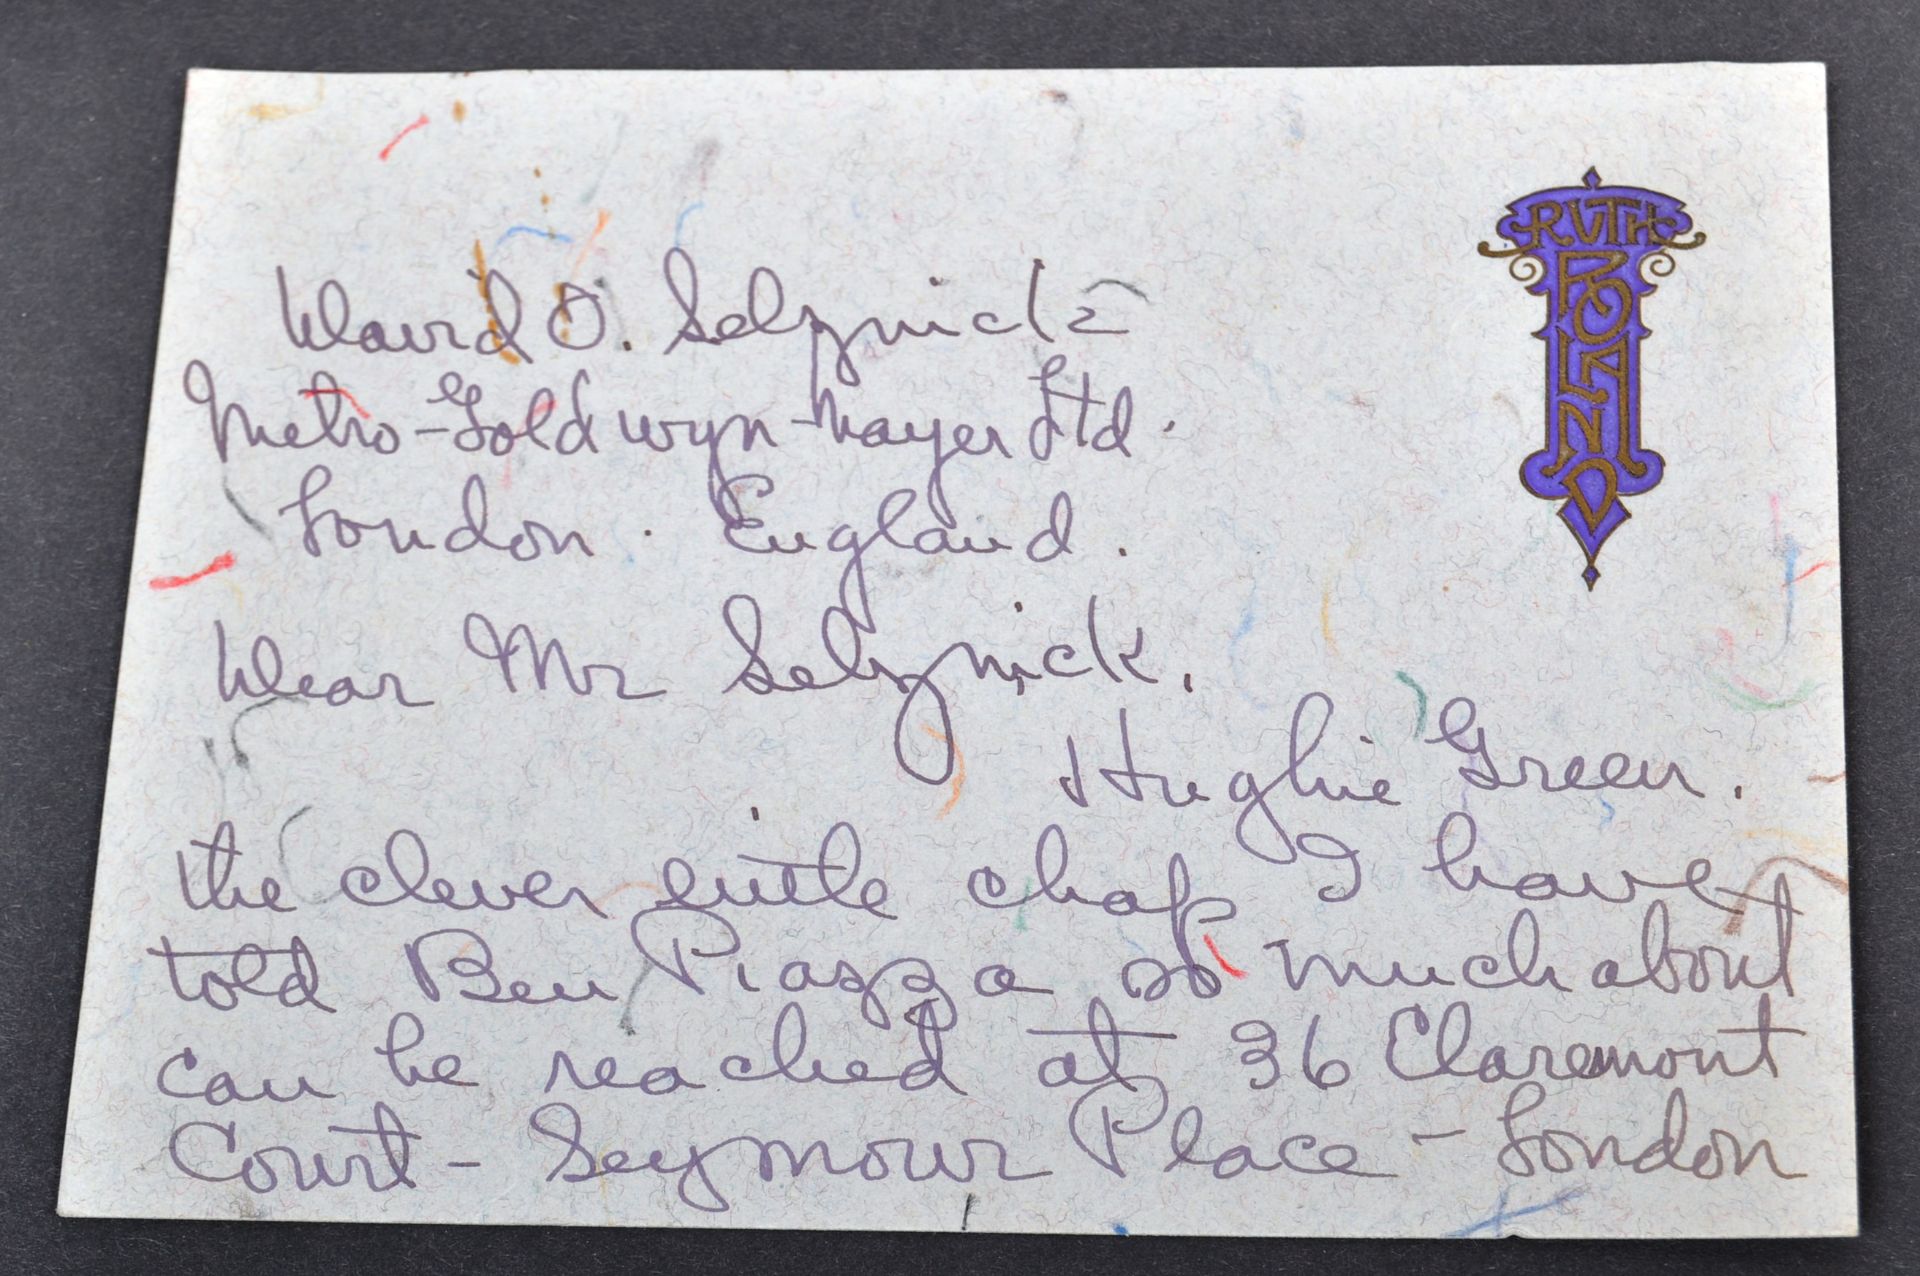 RUTH
ROLAND
David O. Selznick -
Metro-Goldwyn-Mayer Ltd.
London. England.
Dear Mr Selznick,
Hughie Green.
the clever little chap I have
told Ben Piazza so much about
can be reached at 36 Claremont
Court - Seymour Place - London